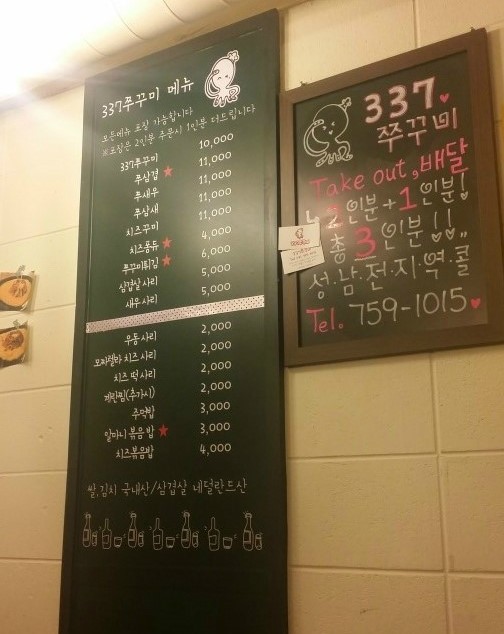 337쭈꾸미 메뉴
모든메뉴 포장 가능합니다
※포장은 2인분 주문시 1인분 더드립니다
337쭈꾸미 10,000
쭈삼겹 ★ 11,000
쭈새우 11,000
쭈삼새 11,000
치즈꾸미 11,000
치즈퐁듀 ★ 4,000
쭈꾸미튀김 ★ 6,000
삼겹살 사리 5,000
새우 사리 5,000
우동 사리 2,000
모짜렐라 치즈 사리 2,000
치즈 떡 사리 2,000
계란찜(추가시) 2,000
주먹밥 3,000
알마니 볶음밥 ★ 3,000
치즈볶음밥 4,000
쌀,김치 국내산/삼겹살 네덜란드산
337♥
쭈꾸미
Take out,배달
↳2인분+1인분!
총 3인분!!,,
성·남·전·지·역·콜
Tel. 759-1015♥